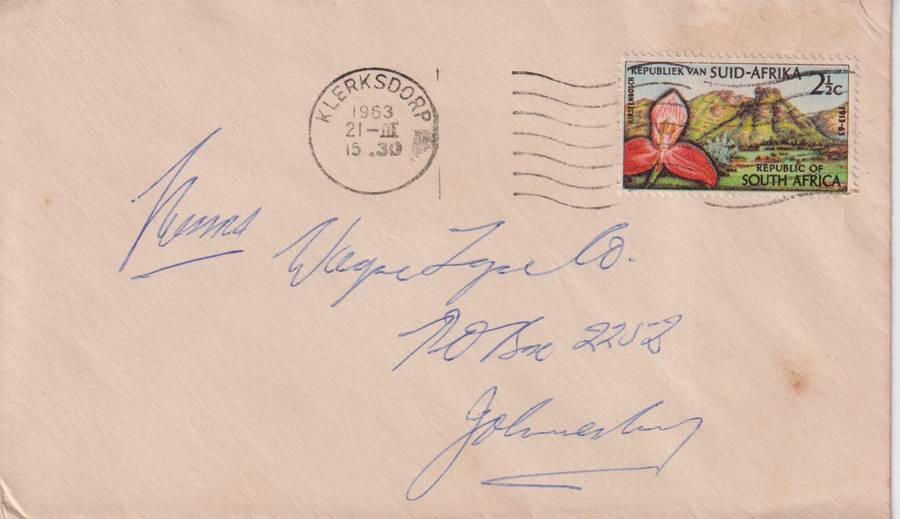 KLERKSDORP
1963
21-III
15.30
REPUBLIEK VAN SUID-AFRIKA
2½c
KIRSTENBOSCH
1913-63
REPUBLIC OF
SOUTH AFRICA
Messrs
Type Co.
PO Box 2252
Johannesburg